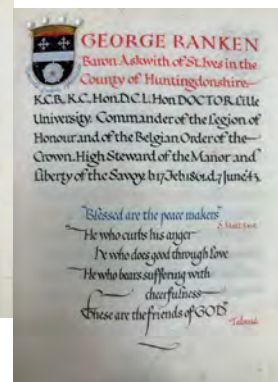 GEORGE RANKEN
Baron Askwith of St. Ives in the
County of Huntingdonshire.
K.C.B., K.C., Hon. D.C.L. Hon DOCTOR. Lille
University. Commander of the Legion of
Honour and of the Belgian Order of the
Crown. High Steward of the Manor and
Liberty of the Savoy. b 17 Feb 1861. d. 7 June 42.
"Blessed are the peace makers"
He who curbs his anger
he who does good through love
He who bears suffering with
cheerfulness
These are the friends of GOD"
Talmud.